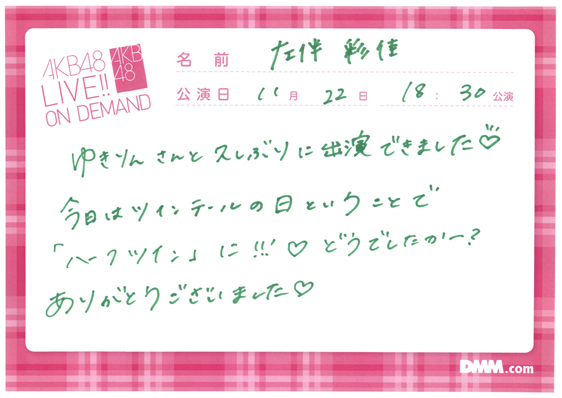 AKB48
LIVE!!
ON DEMAND
AKB
48
名前 左伴 彩佳
公演日 11月 22日 18:30公演
ゆきりんさんと久しぶりに出演できました♡
今日はツインテールの日ということで
「ハーフツイン」に!!!♡ どうでしたかー?
ありがとうございました♡
DMM.com